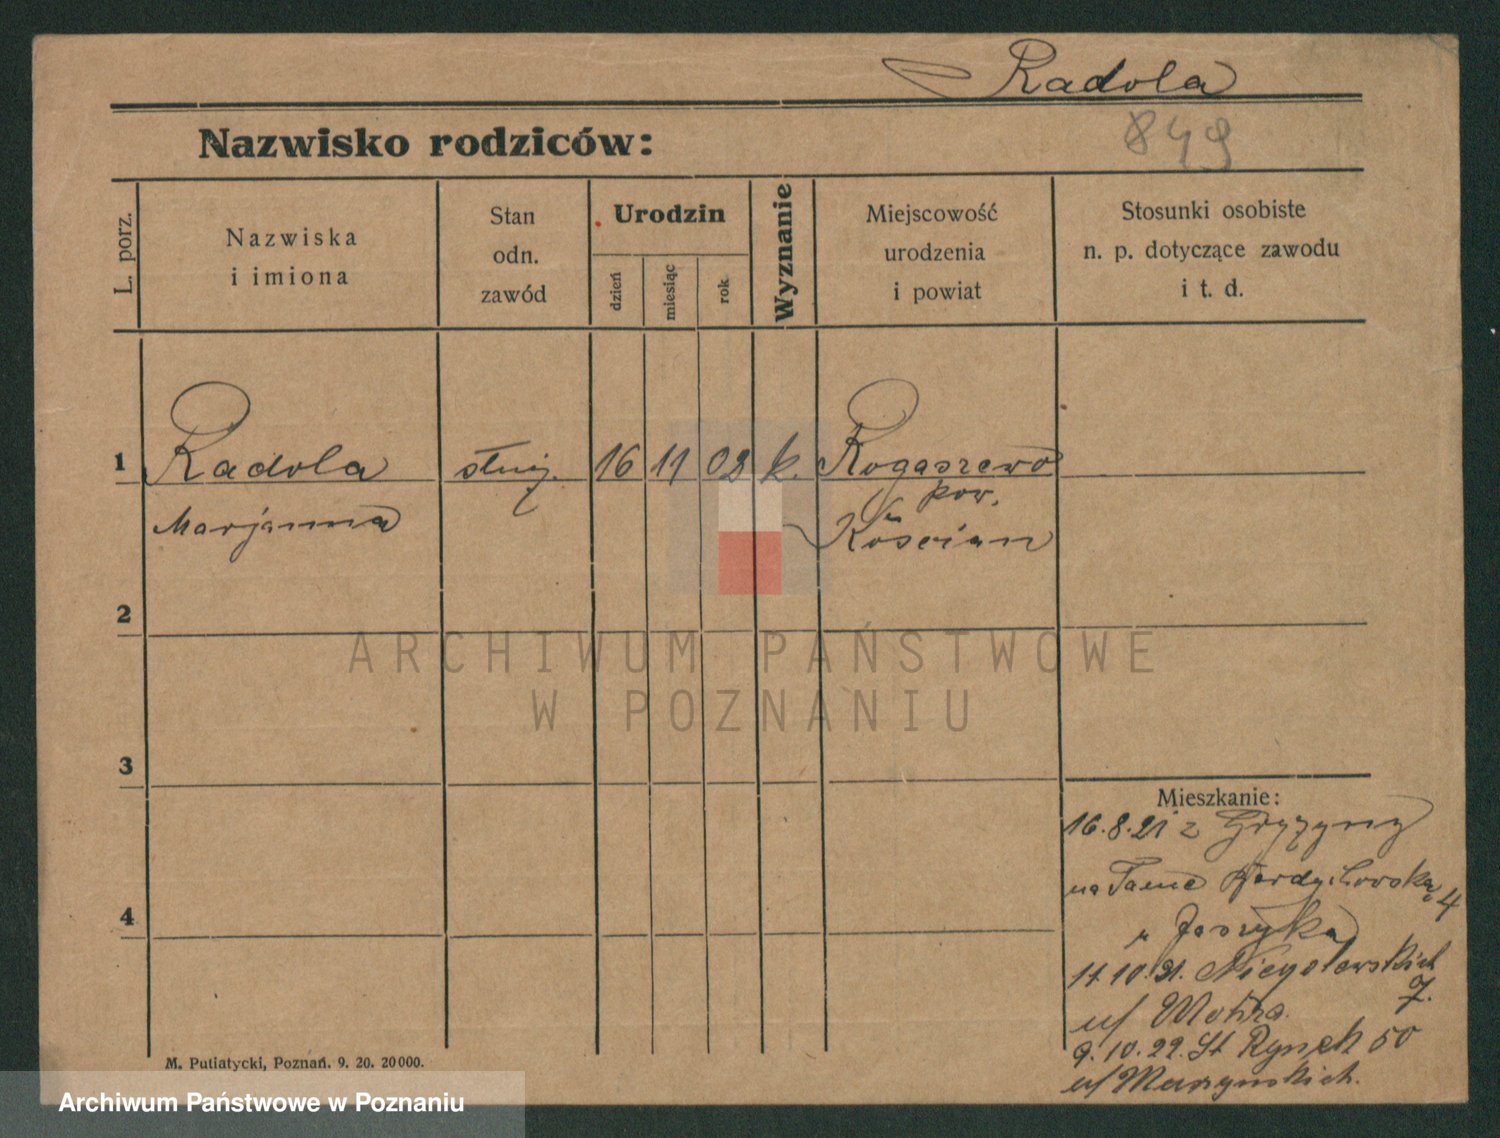 Radola
849
Nazwisko rodziców:
L. porz.
Nazwiska
i imiona
Stan
odn.
zawód
Urodzin
dzień
miesiąc
rok
Wyznanie
Miejscowość
urodzenia
i powiat
Stosunki osobiste
n. p. dotyczące zawodu
i t. d.
1
Radola
Marjanna
służ.
16
11
02
k.
Rogaszewo
pow.
Kościan
2
3
4
Mieszkanie:
16.8.21 z Gryżyny
na Tamę 4
u Jaszyka
10.21. Niegolewskich
7.
u/
9.10.22. St Rynek 50
u/ Murzynskich.
M. Putiatycki, Poznań. 9. 20. 20000.
ARCHIWUM PAŃSTWOWE
W POZNANIU
Archiwum Państwowe w Poznaniu